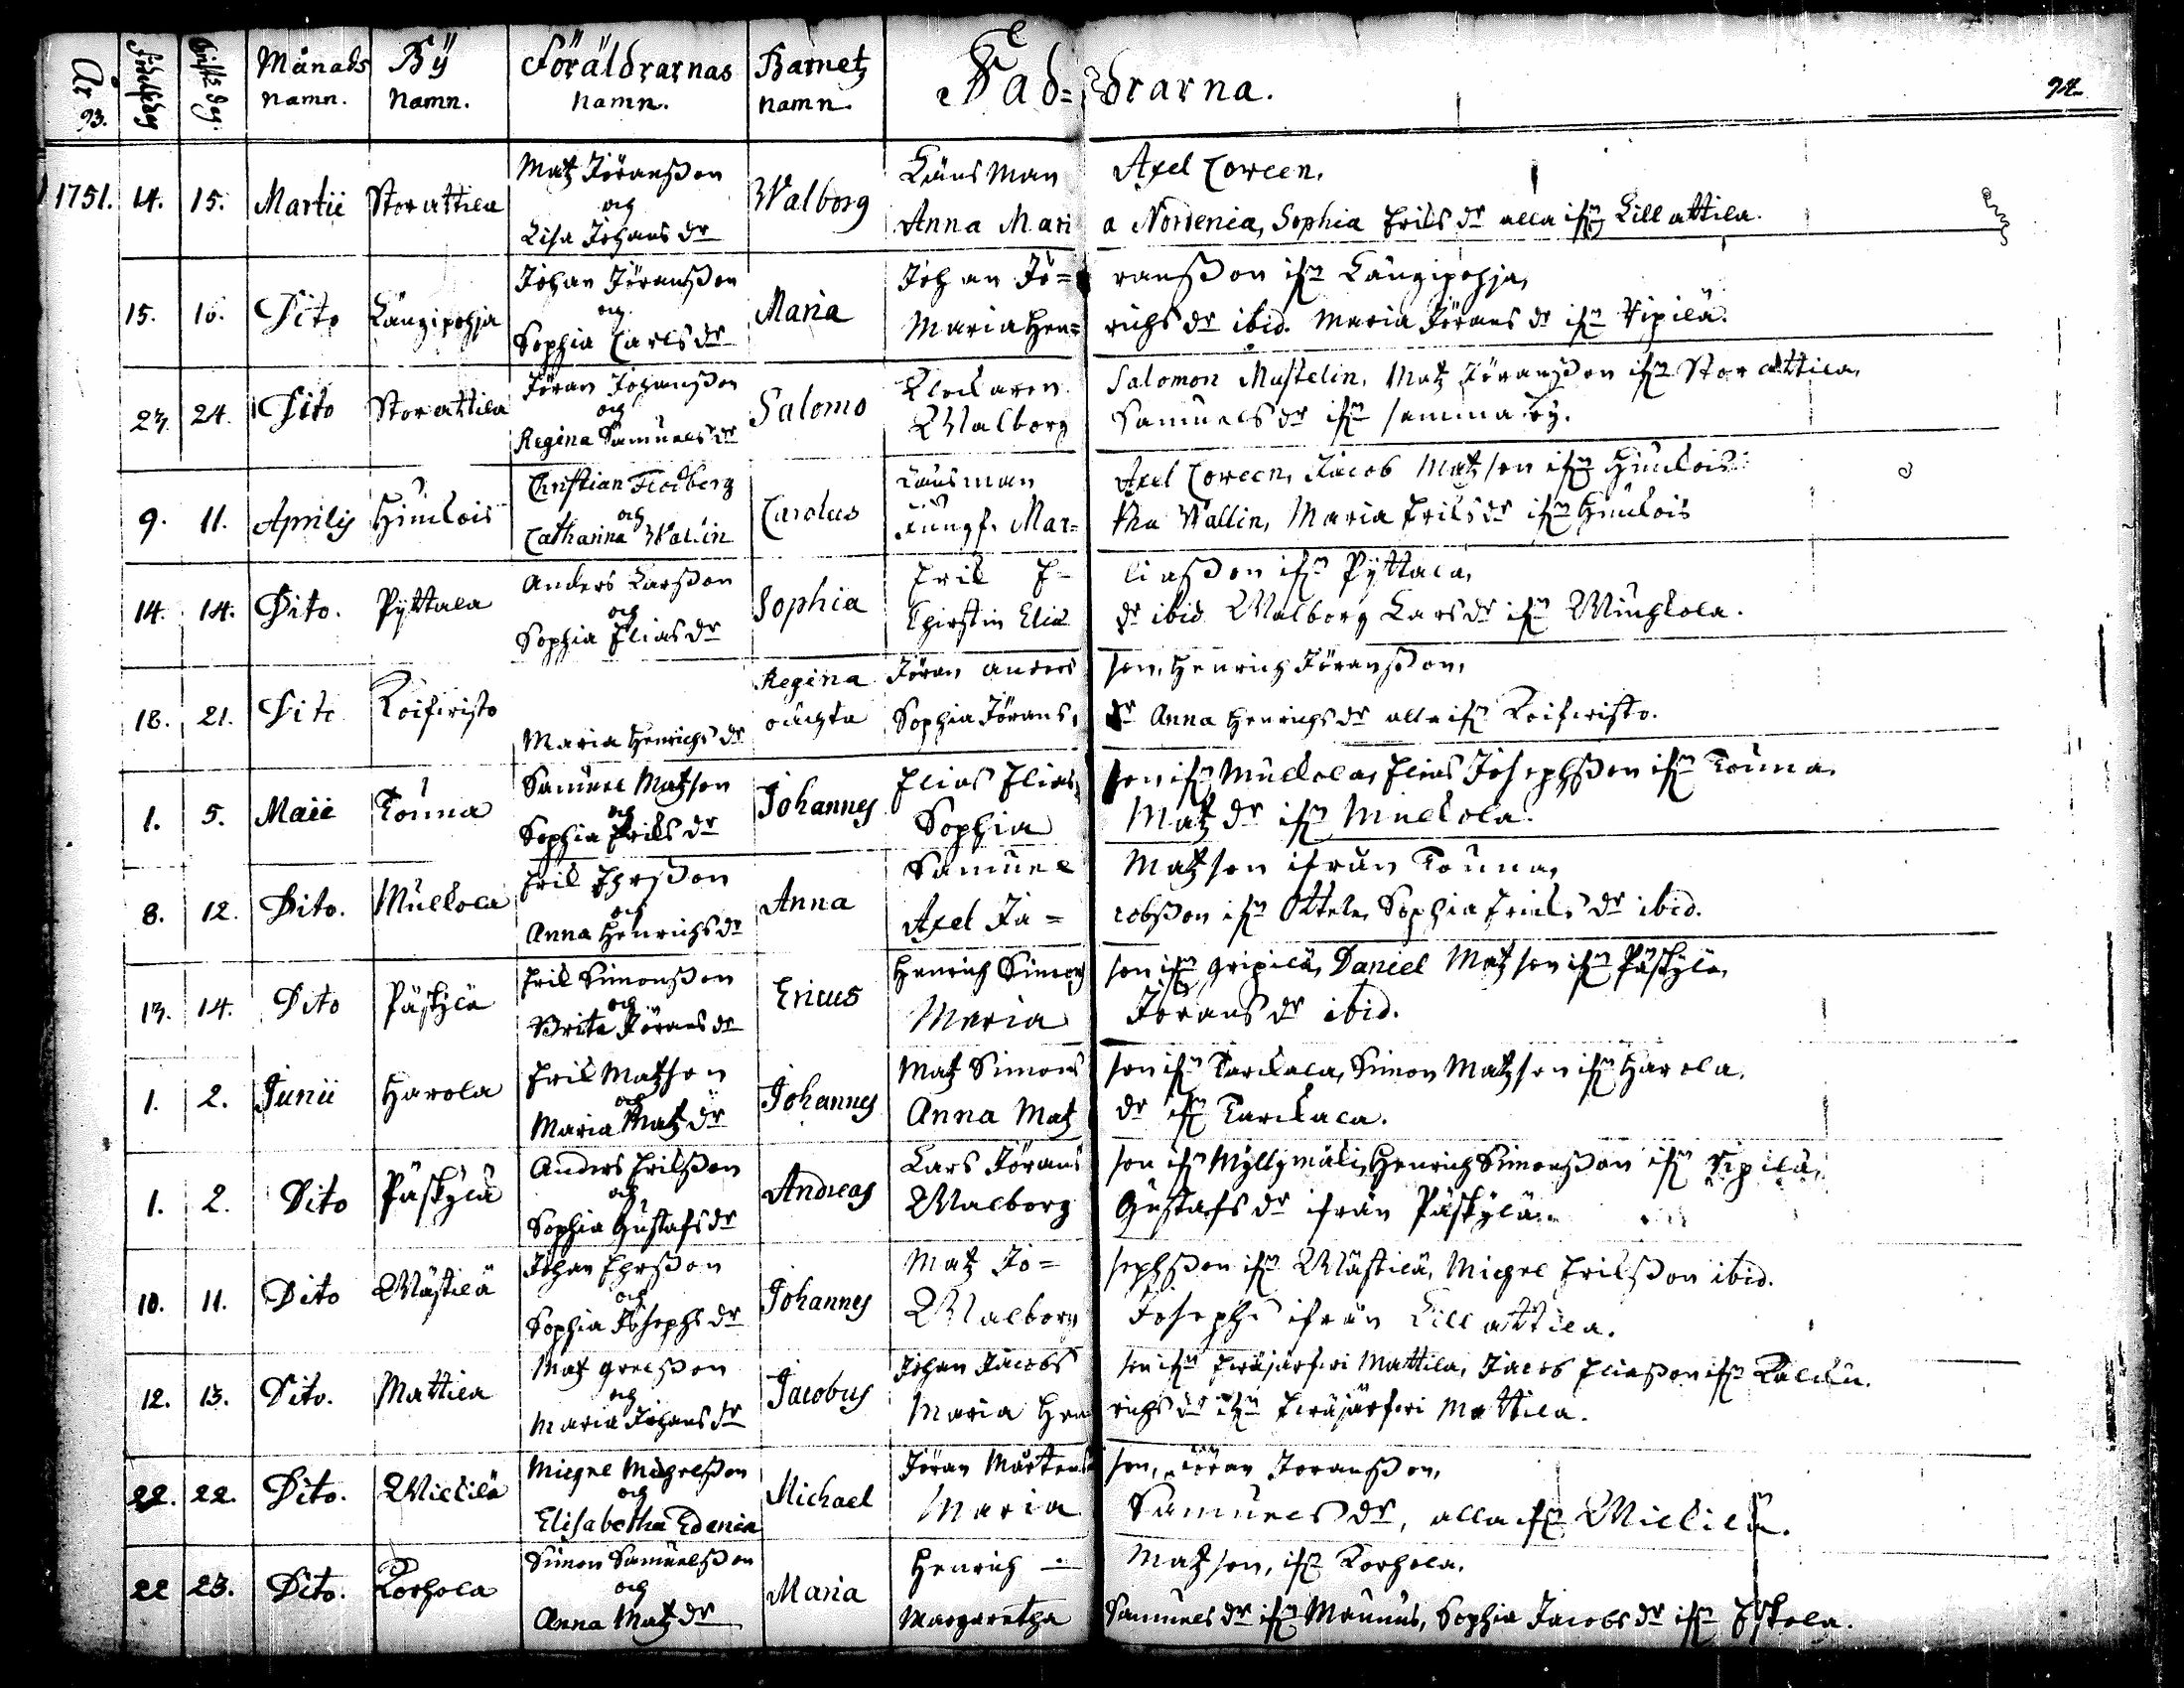 År 93. Födelsedag Christ: dag: Månads namn. Bÿ Namn. Föräldrarnas namn. Barnetz namn. Fad=drarna. 94.
1751. 14. 15. Martii Storattila Matz Jöransson och Lisa Johans dr Walborg Läns Man Axel Coreen,
Anna Maria Nordenia, Sophia Eriks dr alla ifrn Lillattila.
15. 16. Dito Längipohja Johan Jöransson och Sophia Carls dr Maria Johan Jö=ransson ifrn Längipohja,
Maria Hen=richs dr ibid. Maria Jörans dr ifrn Sipilä.
23. 24. Dito Storattila Jöran Johansson och Regina Samuels dr Salomo Klockaren Salomon Mustelin, Matz Jöransson ifrn Storattila,
Walborg Samuels dr ifrn samma by.
9. 11. Aprilis Hinckois Christian Flodberg och Catharina Wallin Carolus Länsman Axel Coreen, Jacob Matzson ifrn Hinckois
Jungf. Mar=tha Wallin, Maria Eriks dr ifrn Hinckois
14. 14. Dito. Pyttala Anders Larsson och Sophia Elias dr Sophia Erik E=liasson ifrn Pyttala,
Chirstin Elias dr ibid Walborg Lars dr ifrn
18. 21. Dito Koifwisto Maria Henrichs dr Regina oächta Jöran Anders son, Henrich Jöransson,
Sophia Jörans dr Anna Henrichs dr alla ifrn Koifwisto.
1. 5. Maii Touna Samuel Matzson och Sophia Eriks dr Johannes Elias Elias son ifrn Muckola, Elias Josephsson ifrn Touna,
Sophia Matz dr ifrn Muckola.
8. 12. Dito. Muckola Erik Ehrsson och Anna Henrichs dr Anna Samuel Matzson ifrån Touna,
Axel Ja=cobsson ifrn Ottela, Sophia Erichs dr ibid.
13. 14. Dito Päskylä Erik Simonsson och Brita Jörans dr Ericus Henrich Simons son ifrn Gripilä, Daniel Matzson ifrn Päskylä,
Maria Jörans dr ibid.
1. 2. Junii Harola Erik Matzson och Maria Matz dr Johannes Matz Simons son ifrn Tarckala, Simon Matzson ifrn Harola.
Anna Matz dr ifrn Tarckala.
1. 2. Dito Päskylä Anders Eriksson och Sophia Gustafs dr Andreas Lars Jörans son ifrn Myllymäki, Henrich Simonsson ifrn Sipilä,
Walborg Gustafs dr ifrån Päskylä.
10. 11. Dito Wästilä Johan Ehrsson och Sophia Josephs dr Johannes Matz Jo=sephsson ifrn Wästilä, Michel Eriksson ibid.
Walborg Josephs ifrån Lillattila.
12. 13. Dito. Mattila Matz Grelsson och Maria Johans dr Jacobus Johan Jacobs son ifrn Eräjärfwi Mattila, Jacob Eliasson ifrn
Maria Henrichs dr ifrn Eräjärfwi Mattila.
22. 22. Dito. Wickilä Michel Michelsson och Elisabetha Edenia Michael Jöran Mårtens son, Jöran Joransson,
Maria Samuels dr, alla ifrn Wickilä.
22 23. Dito. Korhola Simon Samuelsson och Anna Matz dr Maria Henrich Matzson, ifrn Korhola.
Margaretha Samuels dr ifrn Maunus, Sophia Jacobs dr ifrn Eskola.